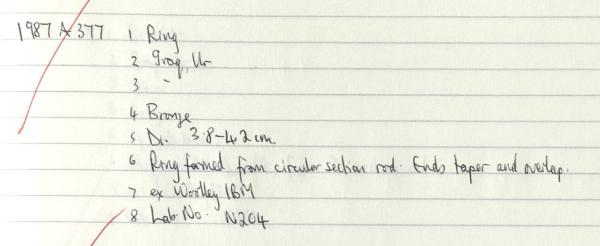 1987 A 377 1 Ring
2 Iraq, Ur
3 -
4 Bronze
5 Di. 3.8-4.2 cm
6 Ring formed from circular section rod. Ends taper and overlap.
7 ex Woolley IBM
8 Lab. No. N204